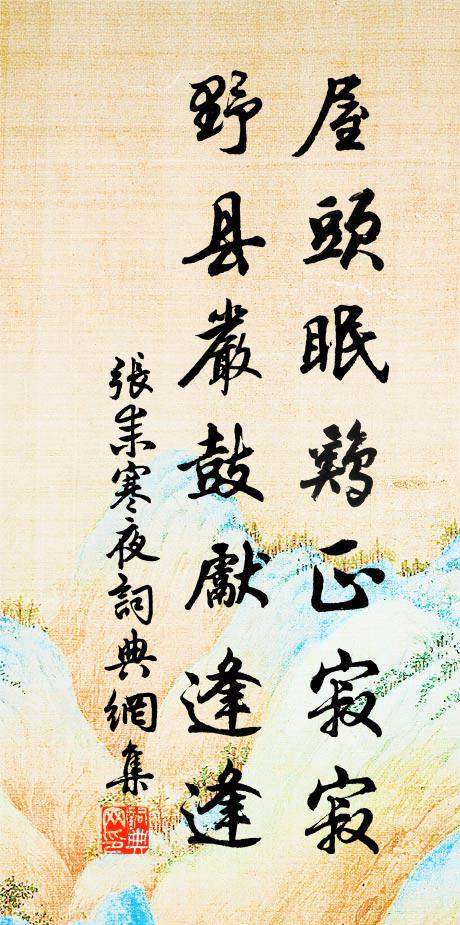 屋頭眠鷄正寂寂
野县嚴鼓獻逢逢
張耒寒夜詞典網集
詞典网印